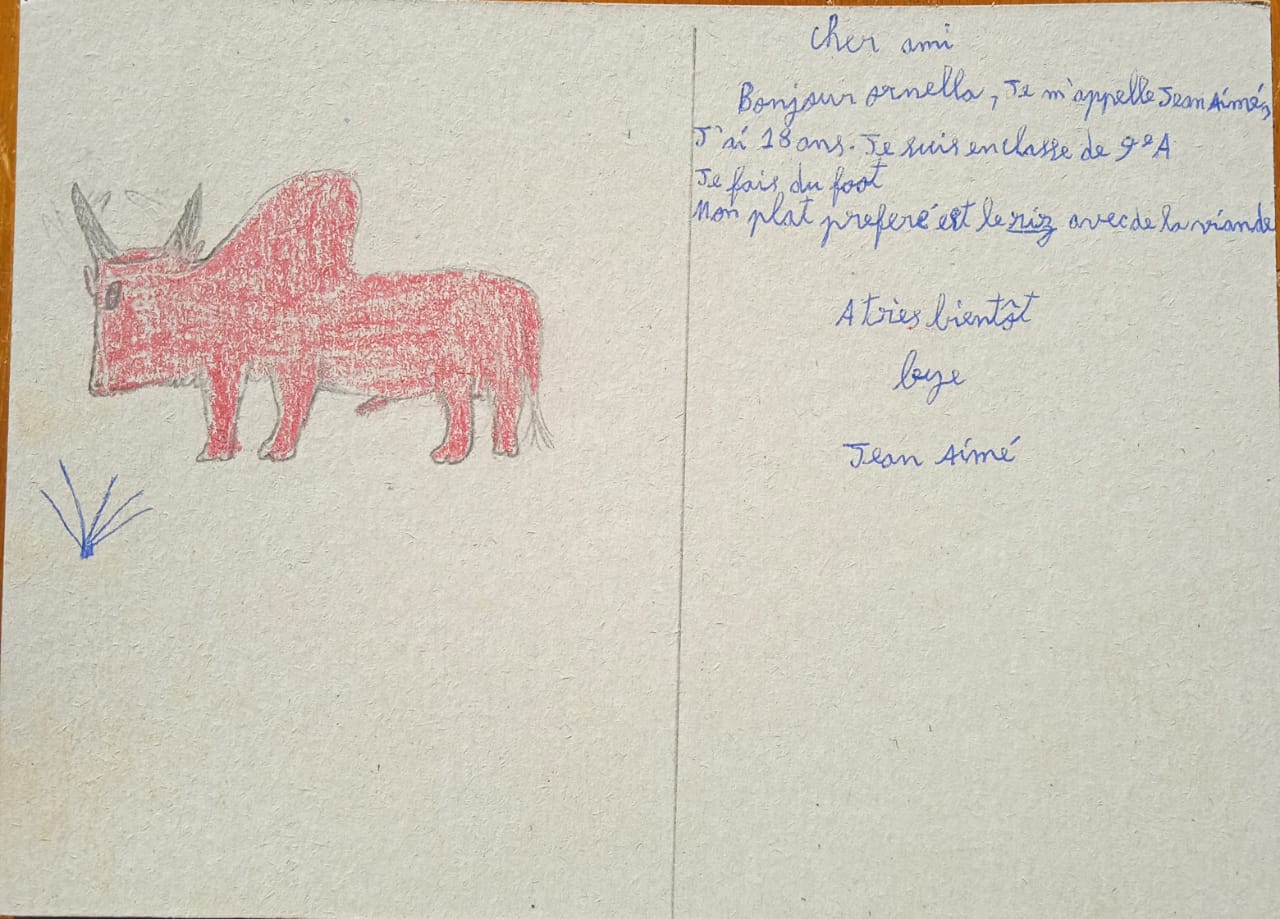 Cher ami
Bonjour ornella, Je m'appelle Jean Aimé,
J'ai 18 ans. Je suis en classe de 9e A
Je fais du foot
Mon plat preferé est le riz avec de la viande
A très bientôt
bye
Jean Aimé